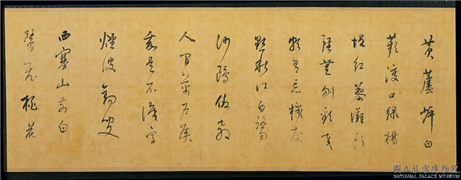 黃蘆岸白
蘋渡口綠楊
堤紅蓼灘頭
雖無刎頸交
卻有忘機友
點秋江白鷺
沙鷗傲殺
人間萬戶侯
不識字
煙波釣叟
西塞山前白
鷺飛桃花
國立故宮博物院
NATIONAL PALACE MUSEUM